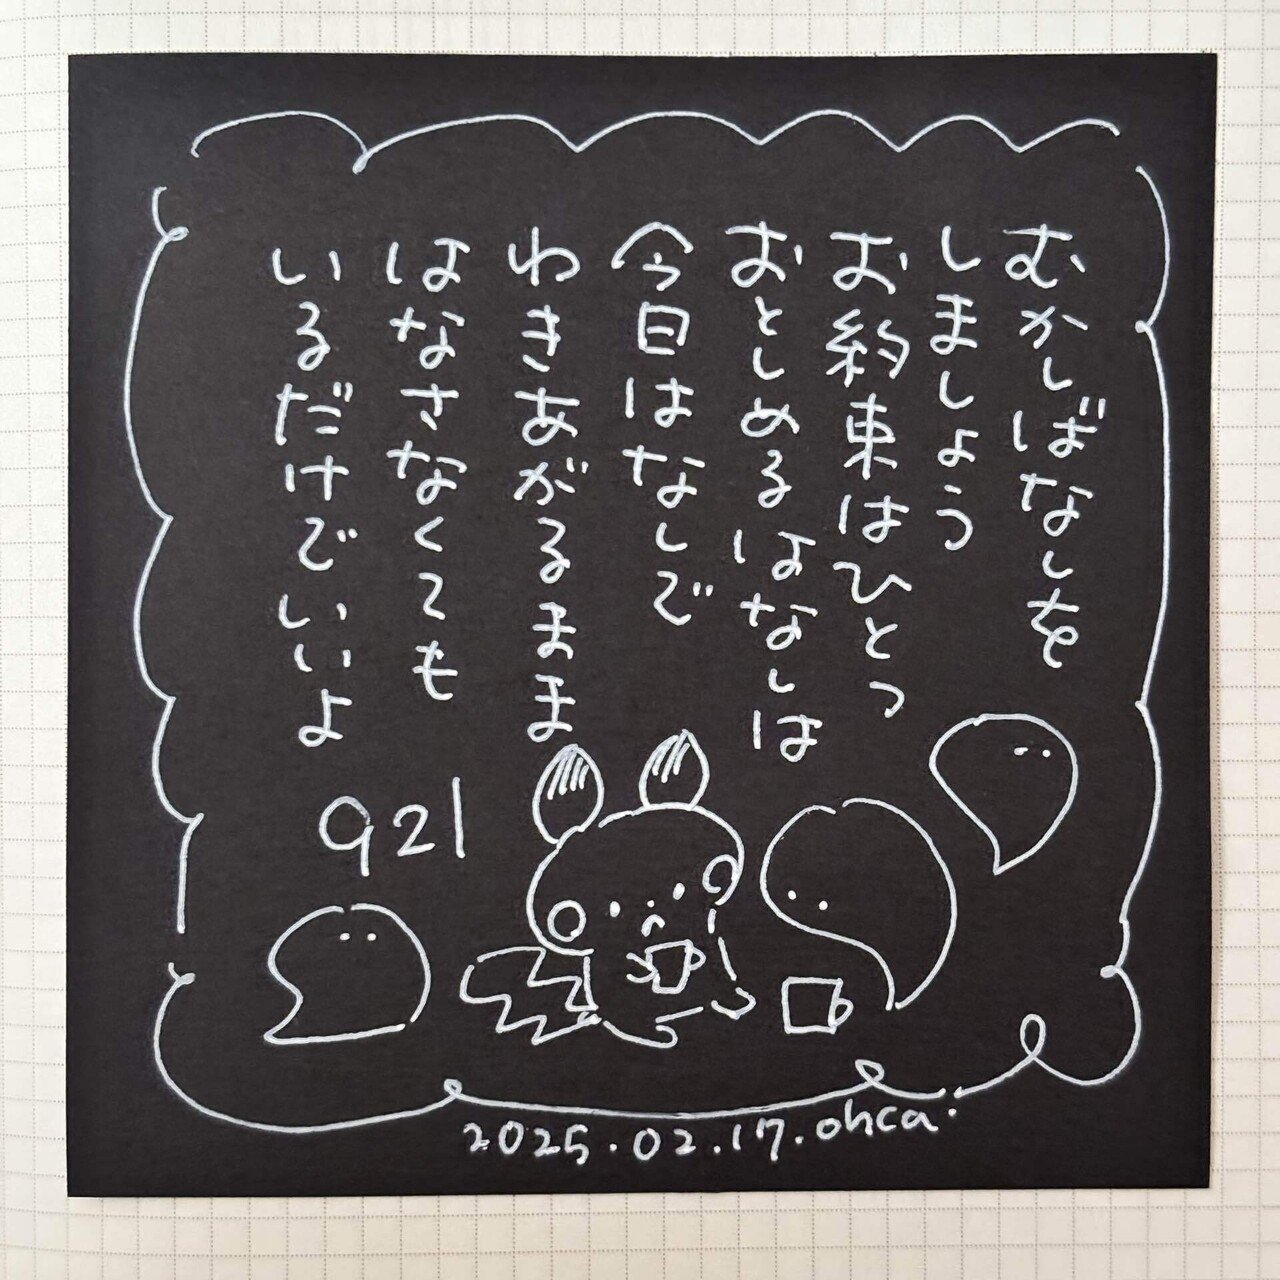 むかしばなしを
しましょう
お約束はひとつ
おとしめるはなしは
今日はなしで
わきあがるまま
はなさなくても
いるだけでいいよ
921
2025.02.17.ohca.